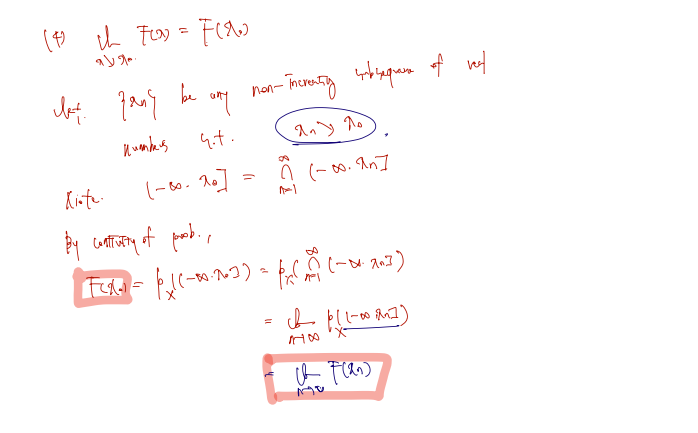 (4) lim F(x) = F(x₀)
x↘x₀
Let, {xn} be any non-increasing subsequence of real
numbers s.t. xn ↘ x₀ .
Note. (-∞. x₀] = ∩ (-∞. xn]
By continuity of prob.,
F(x₀) = P_X((-∞. x₀]) = P_X(∩ (-∞. xn])
= lim P_X((-∞ xn])
= lim F(xn)